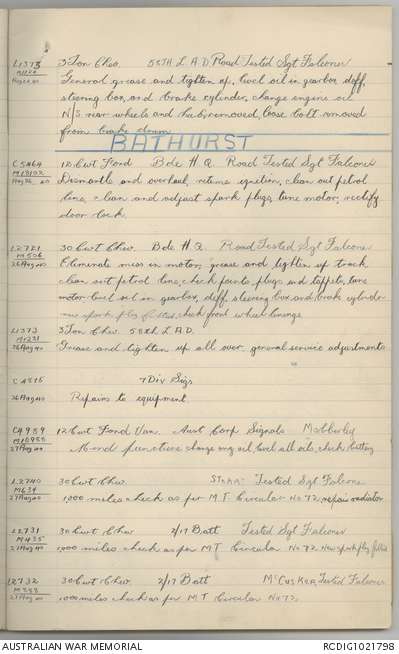 L1373 3 Ton Chev. 58TH L.A.D. Road Tested Sgt Falconer
General grease and tighten up, level oil in gearbox, diff,
steering box, and brake cylinder, change engine oil
N/S rear wheels and hub removed, loose bolt removed
from brake drum
BATHURST
C5464 12 Cwt Ford Bde H.Q. Road Tested Sgt Falconer
Dismantle and overhaul, retime ignition, clean out petrol
line, clean and adjust spark plugs, tune motor, rectify
door lock.
L2721 30 Cwt Chev. Bde H.Q. Road Tested Sgt Falconer
M506
26 Aug 40 Eliminate miss in motor, grease and tighten up track
clean out petrol line, check points, plugs and tappets, tune
motor level oil in gearbox, diff, steering box and brake cylinder
new spark plug fitted check front wheel bearings
L1373 3 Ton Chev 58th L.A.D.
M1231
26 Aug 40 Grease and tighten up all over, general service adjustments
C4515 7 Div Sigs
26 Aug 40 Repairs to equipment
C4959 12 Cwt Ford Van. Aust Corp Signals
27 Aug 40 Mend puncture change eng oil level all oils, check battery
L2740 30 Cwt Chev. Tested Sgt Falconer
M634
27 Aug 40 1,000 miles check as per M.T. Circular No 72, repair radiator
L2731 30 Cwt Chev 2/17 Batt Tested Sgt Falconer
27 Aug 40 1,000 miles check as per M.T. Circular No 72. New spark plug fitted
L2732 30 Cwt Chev. 2/17 Batt McCusker Tested Falconer
27 Aug 40 1000 miles check as per M.T. Circular No 72,
AUSTRALIAN WAR MEMORIAL RCDIG1021798